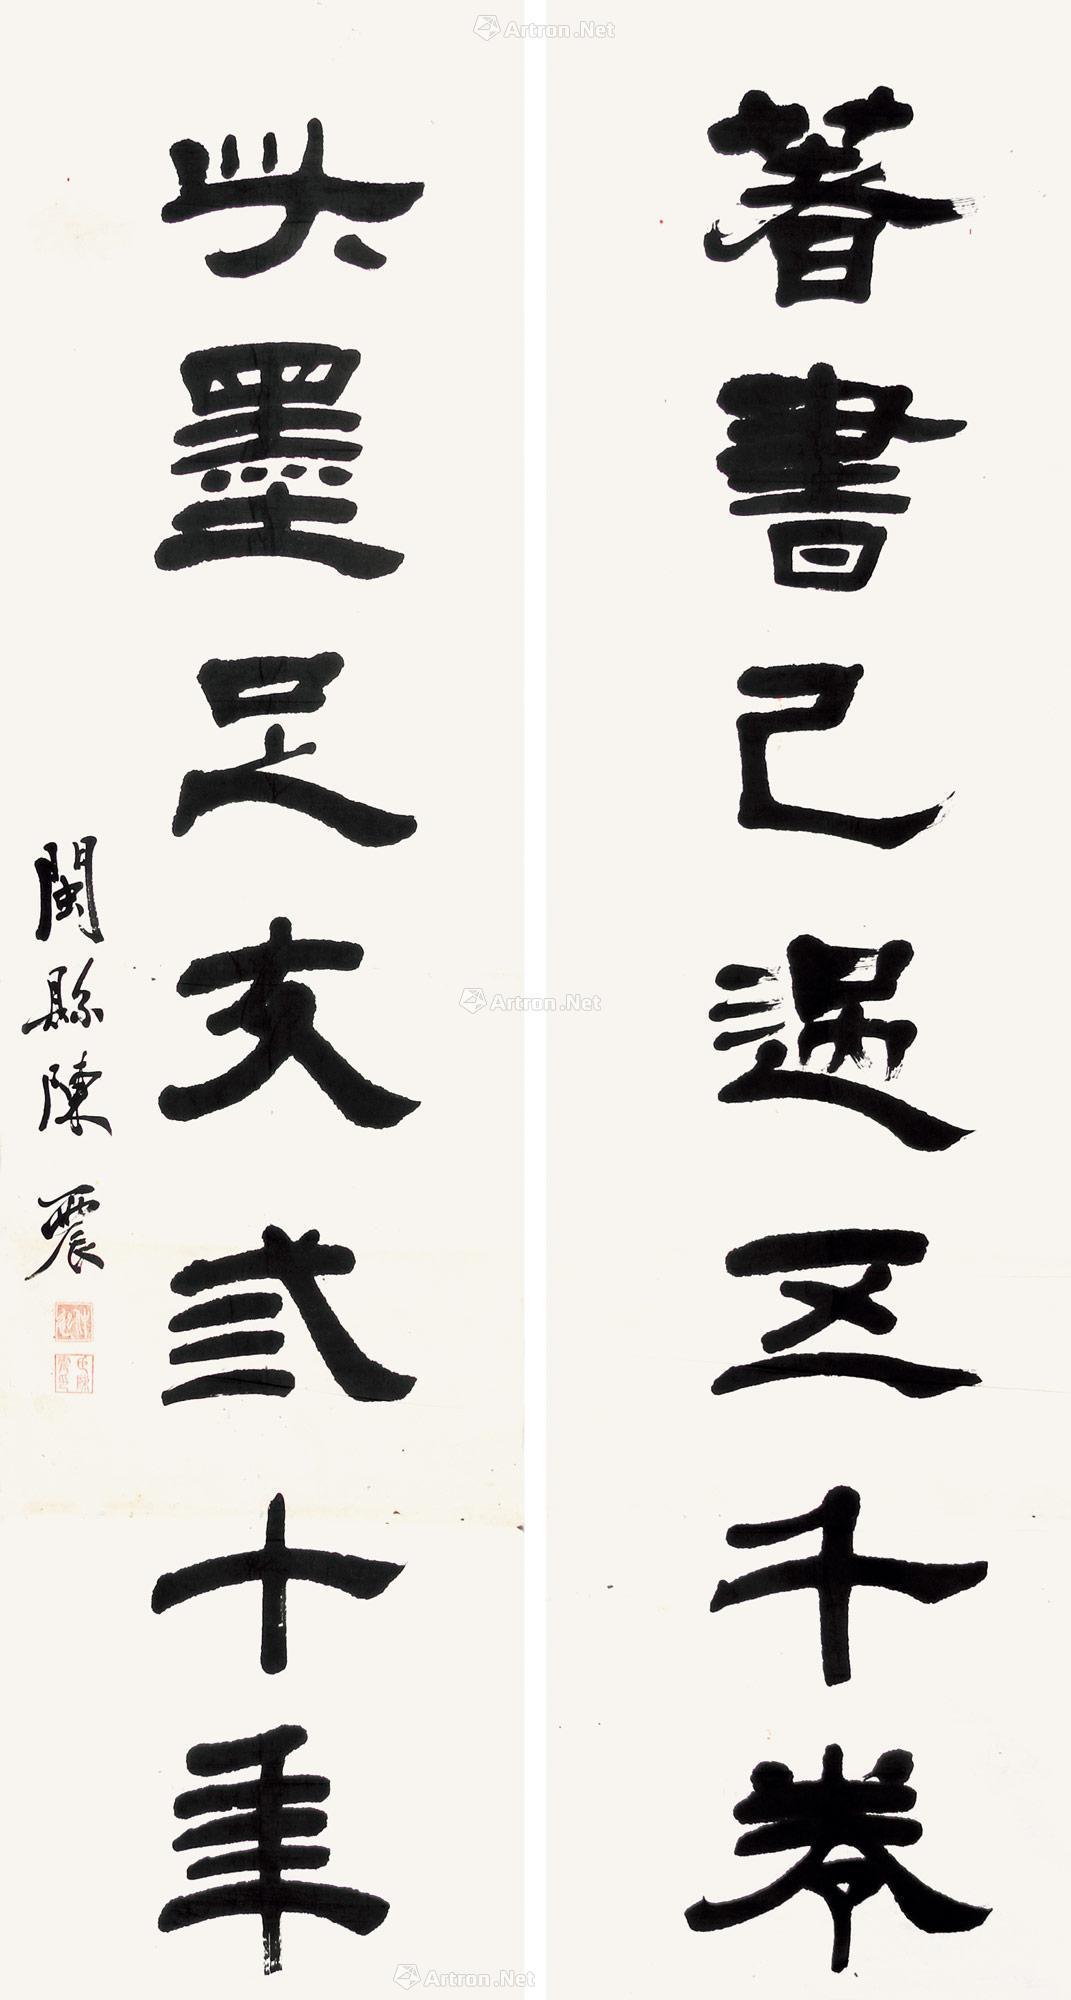 著書已過五千卷
此墨足支弍十年
閩縣陳震
Artron.Net
Artron.Net
Artron.Net